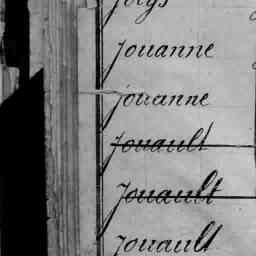 Jouanne
Jouanne
Jouault
Jouault
Jouault